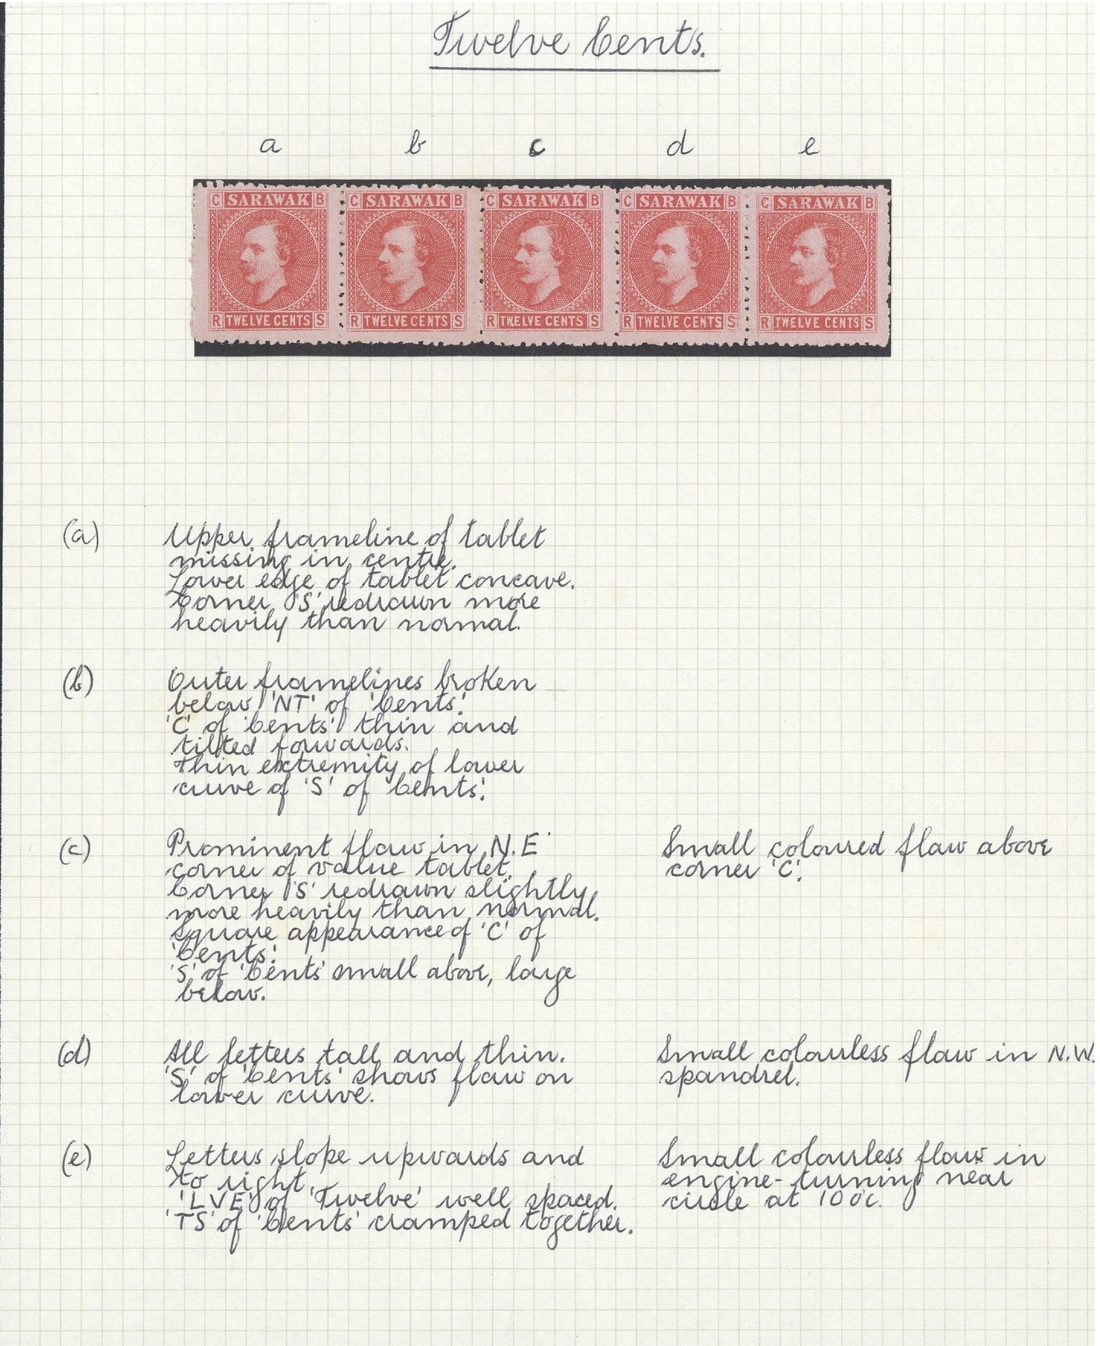 Twelve Cents.
a b c d e
C SARAWAK B C SARAWAK B C SARAWAK B C SARAWAK B C SARAWAK B
R TWELVE CENTS S R TWELVE CENTS S R TWELVE CENTS S R TWELVE CENTS S R TWELVE CENTS S
(a) Upper frameline of tablet
missing in centre.
Lower edge of tablet concave.
Corner 'S' redrawn more
heavily than normal.
(b) Outer framelines broken
below 'NT' of 'Cents'.
'C' of 'Cents' thin and
tilted forwards.
Thin extremity of lower
curve of 'S' of 'Cents'.
(c) Prominent flaw in N.E
corner of value tablet.
Corner 'S' redrawn slightly
more heavily than normal.
Square appearance of 'C' of
'Cents'.
'S' of 'Cents' small above, large
below.
Small coloured flaw above
corner 'C'.
(d) All letters tall and thin.
'S' of 'Cents' shows flaw on
lower curve.
Small colourless flaw in N.W.
spandrel.
(e) Letters slope upwards and
to right.
'LVE' of 'Twelve' well spaced.
'TS' of 'Cents' cramped together.
Small colourless flaw in
engine-turning near
circle at 10 o'c.